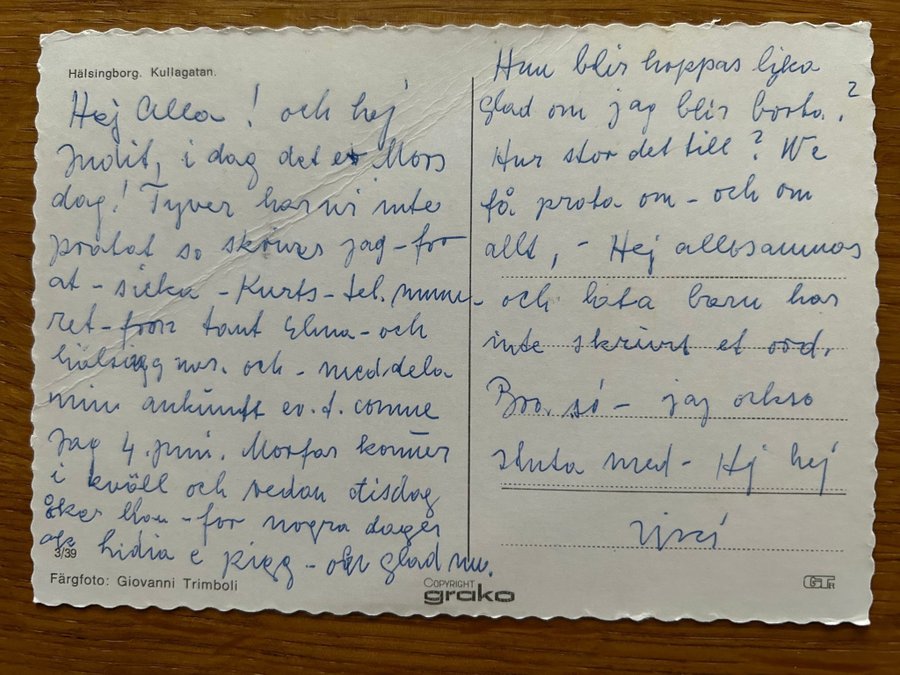 Hälsingborg. Kullagatan.
Hej Alla! och hej
Judit, i dag det er Mors
dag! Tyver har vi inte
pratat so skriver jag - for
at - sicka - Kurts - tel. numme-
ret - fron tant Elma - och
och - meddela
min ankunft ev. d. comme
Jag 4. juni. Morfar kommer
i kväll och redan tisdag
åker han - for nogra dager
Lidia e pigg - och glad nu.
3/39
Färgfoto: Giovanni Trimboli
COPYRIGHT
grako
Hun blir hoppas lika
glad om jag blir borta?
Hur stor det till? We
få prata om - och om
allt, - Hej allesammas
och lata barn har
inte skrivt et ord.
Bra. så - jag ockso
sluta med - Hej hej